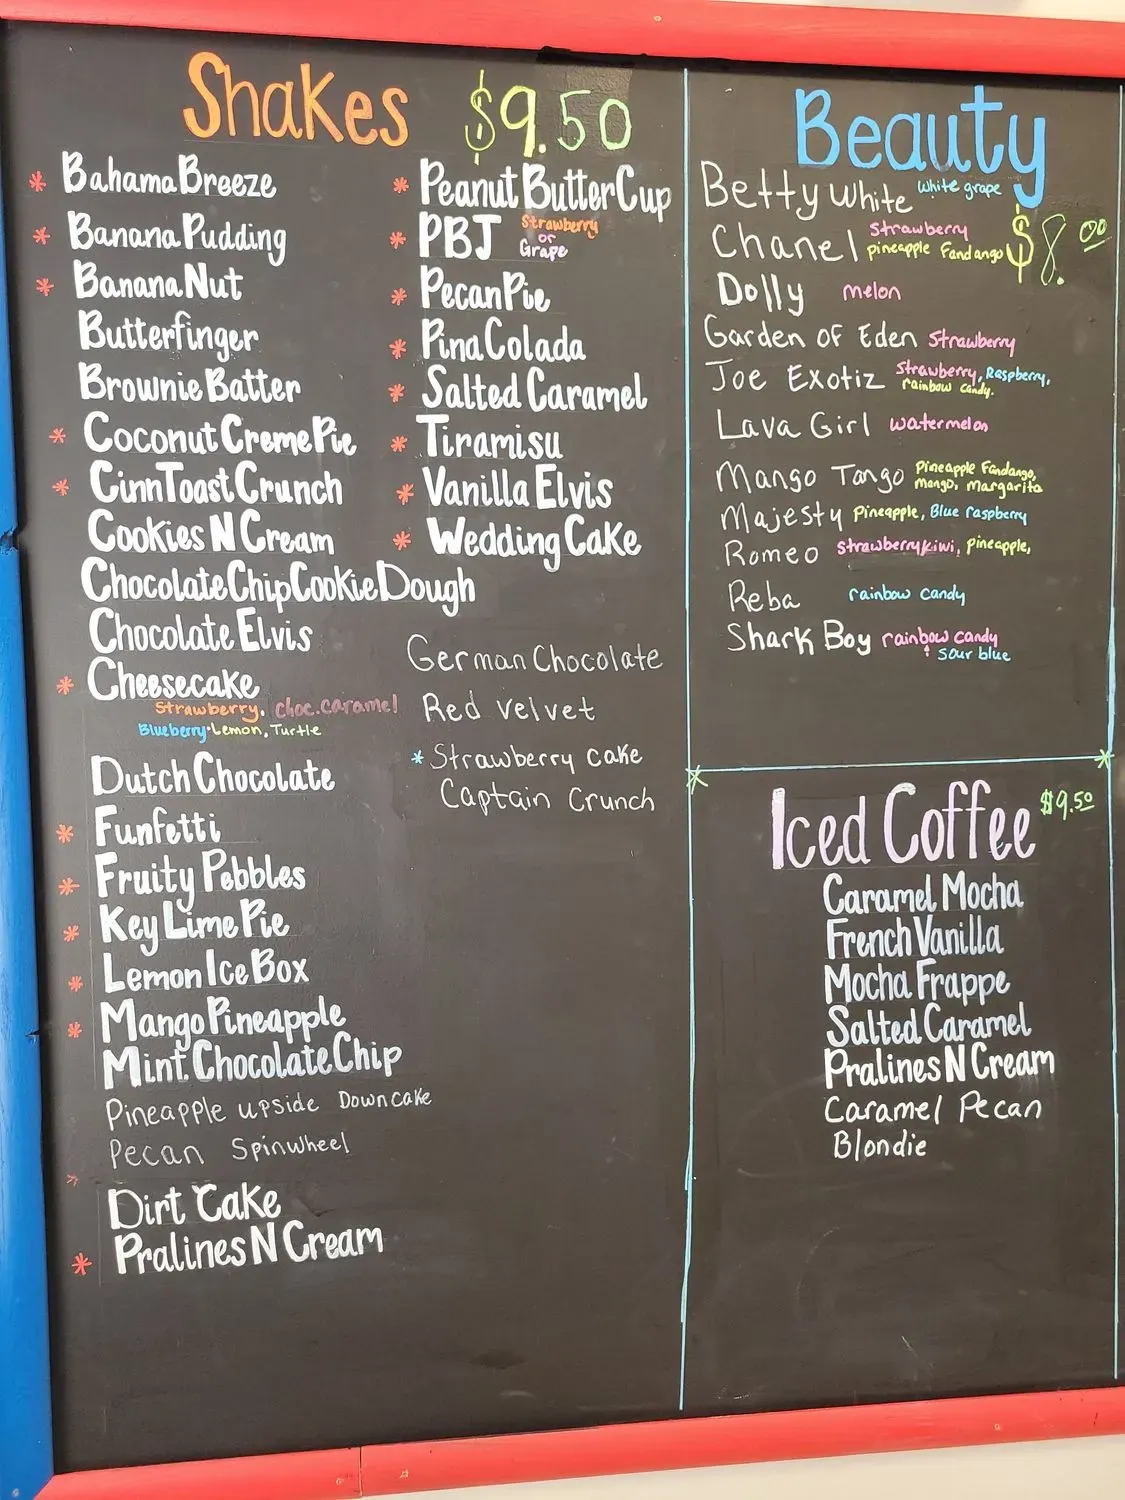 Shakes $9.50
* Bahama Breeze
* Banana Pudding
* Banana Nut
Butterfinger
Brownie Batter
* Coconut Creme Pie
* CinnToastCrunch
Cookies N Cream
Chocolate Chip Cookie Dough
Chocolate Elvis
* Cheesecake
Strawberry, choc.caramel
Blueberry•Lemon, Turtle
Dutch Chocolate
* Funfetti
* Fruity Pebbles
* Key Lime Pie
* Lemon Ice Box
* Mango Pineapple
Mint.Chocolate Chip
Pineapple upside Downcake
Pecan Spinwheel
Dirt Cake
* Pralines N Cream
* Peanut Butter Cup
* PBJ Strawberry
or
Grape
* Pecan Pie
* Pina Colada
* Salted Caramel
* Tiramisu
* Vanilla Elvis
* Wedding Cake
German Chocolate
Red velvet
* Strawberry cake
Captain Crunch
Beauty
$8.00
Betty White white grape
Chanel Strawberry
pineapple Fandango
Dolly melon
Garden of Eden Strawberry
Joe Exotiz Strawberry, Raspberry,
rainbow candy.
Lava Girl watermelon
Mango Tango Pineapple Fandango,
mango, margarita
Majesty Pineapple, Blue raspberry
Romeo Strawberry kiwi, pineapple,
Reba rainbow candy
Shark Boy rainbow candy
sour blue
Iced Coffee $9.50
Caramel Mocha
French Vanilla
Mocha Frappe
Salted Caramel
Pralines N Cream
Caramel Pecan
Blondie